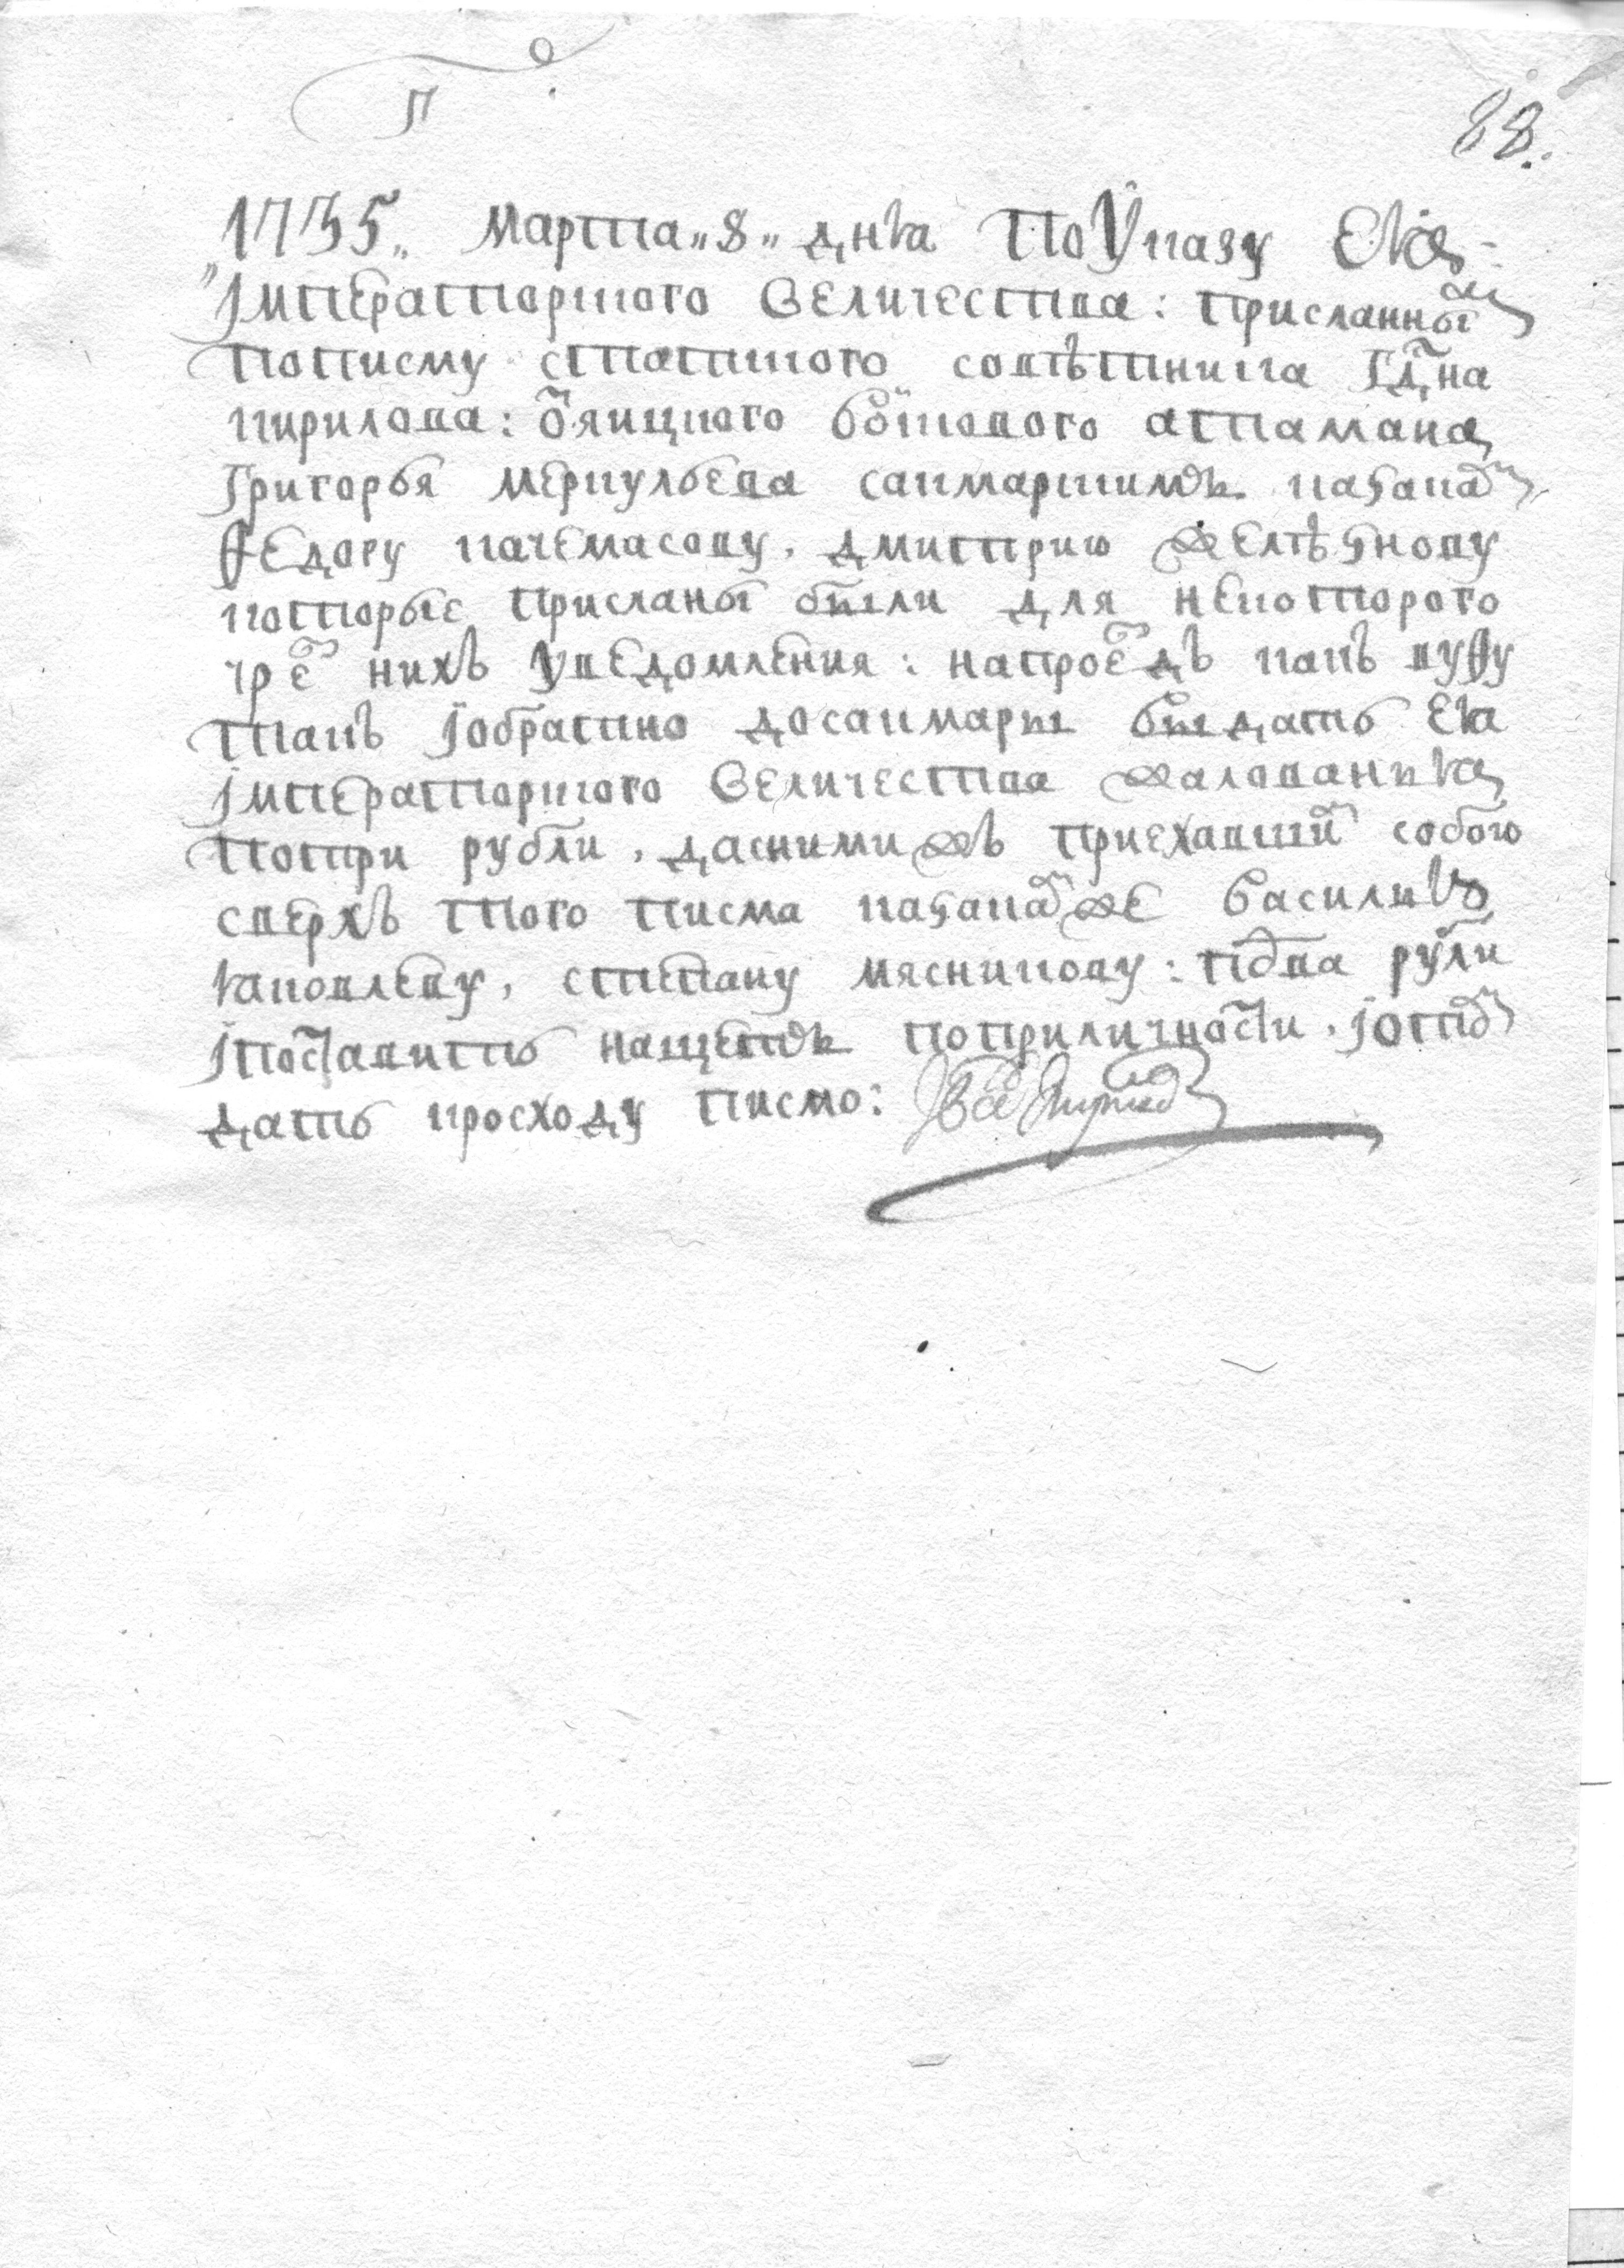 П
88.
1735„ Марта „8„ дня По Указу Ея
Імператорского Величества: присланным
по писму статского советника Гдна
Кирилова: от яицкого войскового атамана
Григорья Меркульева сакмарским казакам
Федору Качемасову, Дмитрию Желѣзнову
которые присланы были для некотораго
чрез нихъ уведомления: на проездъ какъ въ уфу
такъ і обратно до сакмары выдать Ея
Імператорского Величества жалованья
по три рубли, да с нимижъ приехавшим собою
сверхъ того писма казакам же Василью
Яковлеву, Степану Мясникову: по два рубли
і поставить на щетъ по приличности, і отом
дать к росходу писмо: